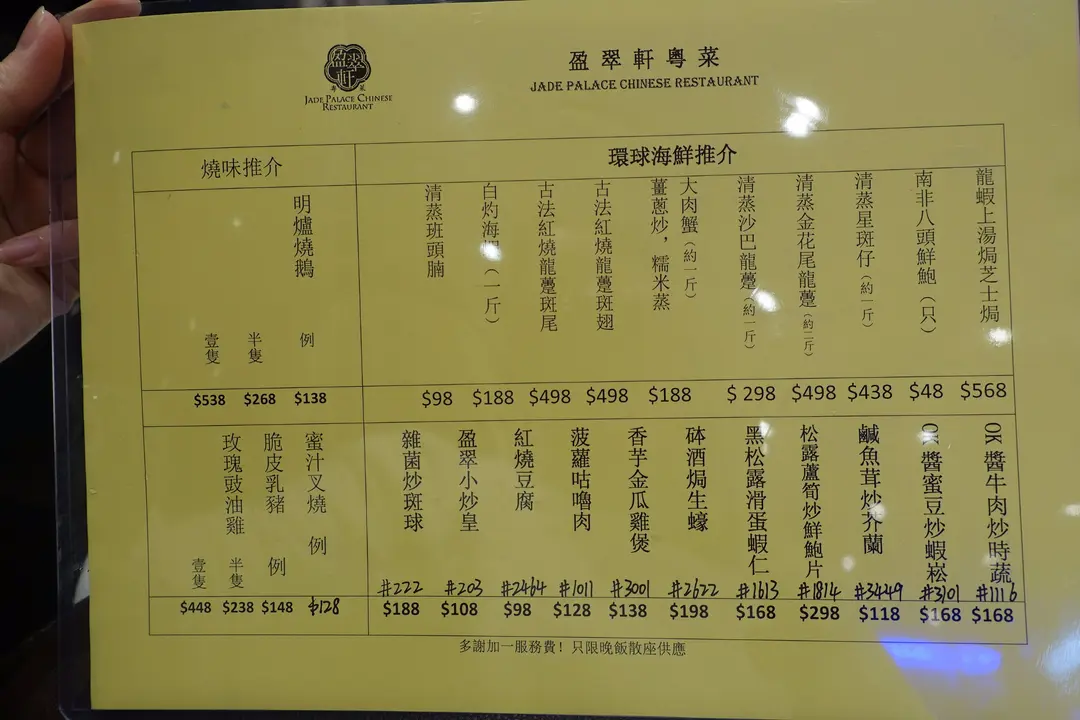 盈翠軒
粵菜
JADE PALACE CHINESE
RESTAURANT
盈翠軒粵菜
JADE PALACE CHINESE RESTAURANT
環球海鮮推介
龍蝦上湯焗芝士焗
$568
南非八頭鮮鮑（只）
$48
清蒸星斑仔（約一斤）
$438
清蒸金花尾龍躉（約二斤）
$498
清蒸沙巴龍躉（約一斤）
$298
大肉蟹（約一斤）
薑蔥炒，糯米蒸
$188
古法紅燒龍躉斑翅
$498
古法紅燒龍躉斑尾
$498
白灼海（一斤）
$188
清蒸班頭腩
$98
燒味推介
明爐燒鵝
例
$138
半隻
$268
壹隻
$538
OK醬牛肉炒時蔬
#1116
$168
OK醬蜜豆炒蝦崧
#3101
$168
鹹魚茸炒芥蘭
#3449
$118
松露蘆筍炒鮮鮑片
#1814
$298
黑松露滑蛋蝦仁
#1613
$168
砵酒焗生蠔
#2622
$198
香芋金瓜雞煲
#3001
$138
菠蘿咕嚕肉
#1011
$128
紅燒豆腐
#2464
$98
盈翠小炒皇
#203
$108
雜菌炒斑球
#222
$188
蜜汁叉燒 例
$128
脆皮乳豬 例
$148
玫瑰豉油雞
半隻
$238
壹隻
$448
多謝加一服務費！只限晚飯散座供應